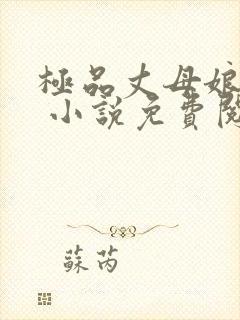 極品丈母娘
小說免費閱
蘇芮